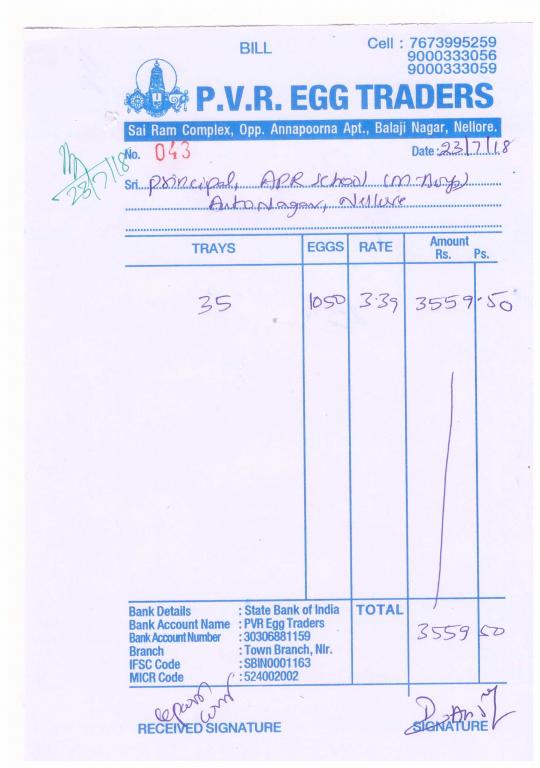 BILL
Cell : 7673995259
9000333056
9000333059
P.V.R. EGG TRADERS
Sai Ram Complex, Opp. Annapoorna Apt., Balaji Nagar, Nellore.
No. 043
Date: 23/7/18
23/7/18
Sri. principal, APR school
AutoNagar, Nellore
TRAYS EGGS RATE Amount
Rs. Ps.
35 1050 3.39 3559.50
Bank Details : State Bank of India TOTAL
Bank Account Name : PVR Egg Traders
Bank Account Number : 30306881159 3559 50
Branch : Town Branch, Nlr.
IFSC Code : SBIN0001163
MICR Code : 524002002
RECEIVED SIGNATURE SIGNATURE